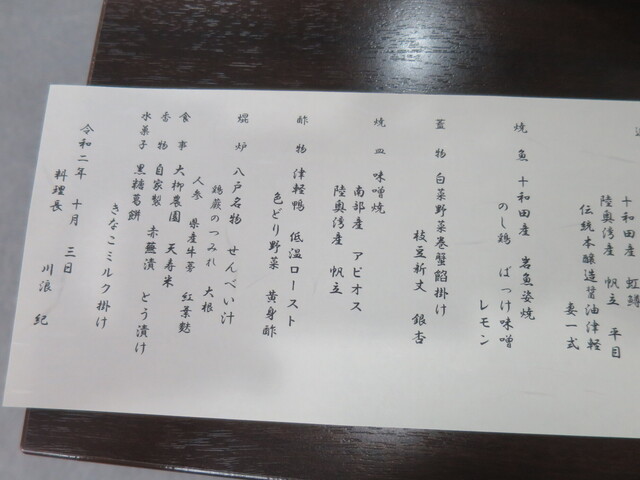 十和田産 虹鱒
陸奥湾産 帆立 平目
伝統本醸造醤油津軽
妻一式
焼魚 十和田産 岩魚姿焼
のし鶏 ばっけ味噌
レモン
蓋物 白菜野菜巻蟹餡掛け
枝豆新丈 銀杏
焼皿 味噌焼
南部産 アピオス
陸奥湾産 帆立
酢物 津軽鴨 低温ロースト
色どり野菜 黄身酢
焜炉 八戸名物 せんべい汁
鶏蕨のつみれ 大根
人参 県産牛蒡 紅葉麩
食事 大柳農園 天寿米
香物 自家製 赤蕪漬 とう漬け
水菓子 黒糖葛餅
きなこミルク掛け
令和二年 十月 三日
料理長 川浪 紀